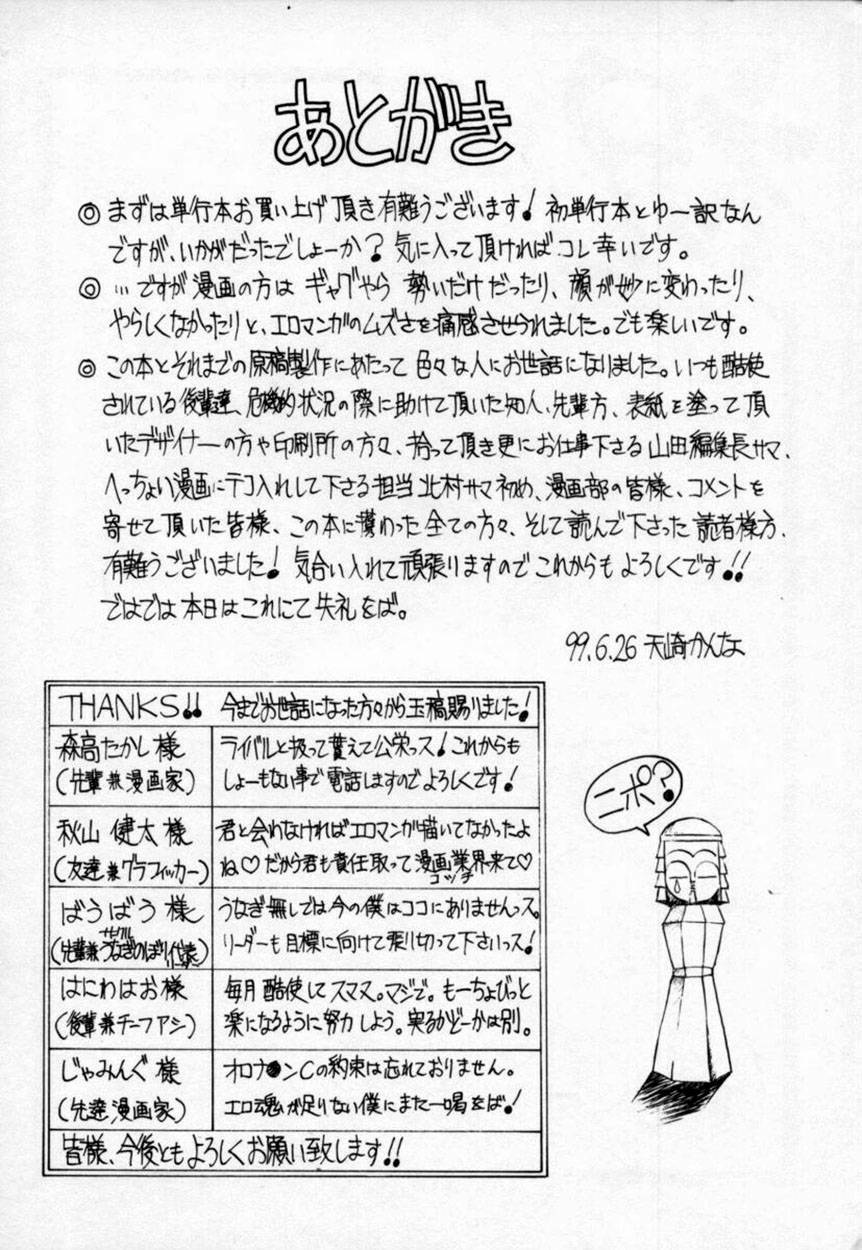 あとがき
◎ まずは単行本お買い上げ頂き有難うございます! 初単行本とゆー訳なん
ですが、いかがだったでしょーか? 気に入って頂ければコレ幸いです。
◎ …ですが漫画の方は ギャグやら 勢いだけだったり、顔が妙に変わったり、
やらしくなかったりと、エロマンガのムズさを痛感させられました。でも楽しいです。
◎ この本とそれまでの原稿製作にあたって 色々な人にお世話になりました。いつも酷使
されている後輩達、危機的状況の際に助けて頂いた知人、先輩方、表紙を塗って頂
いたデザイナーの方や印刷所の方々、拾って頂き更にお仕事下さる 山田編集長サマ、
へっちょい漫画にテコ入れして下さる担当 北村サマ初め、漫画部の皆様、コメントを
寄せて頂いた皆様、この本に携わった全ての方々、そして読んで下さった 読者様方、
有難うございました! 気合い入れて頑張りますので これからも よろしくです!!
ではでは 本日は これにて 失礼をば。
99.6.26 天崎かんな
THANKS!! 今までお世話になった方々から玉稿賜りました!
森高たかし様
(先輩兼漫画家)
ライバルと扱って貰えて公栄っス! これからも
しょーもない事で電話しますので よろしくです!
秋山 健太様
(友達兼グラフィッカー)
君と会わなければエロマンガ描いてなかったよ
ね♡ だから君も責任取って漫画業界来て♡
コッチ
ばうばう様
サークル
(先輩兼うなぎのぼり代表)
うなぎ無しでは今の僕はココにありませんっス。
リーダーも目標に向けて乗り切って下さいっス!
はにわはお様
(後輩兼チーフアシ)
毎月酷使してスマヌ。マジで。もーちょびっと
楽になるように努力しよう。実るかどーかは別。
じゃみんぐ様
(先達漫画家)
オロナ●ンCの約束は忘れておりません。
エロ魂が足りない僕にまた一喝をば!
皆様、今後ともよろしくお願い致します!!
ニポ?